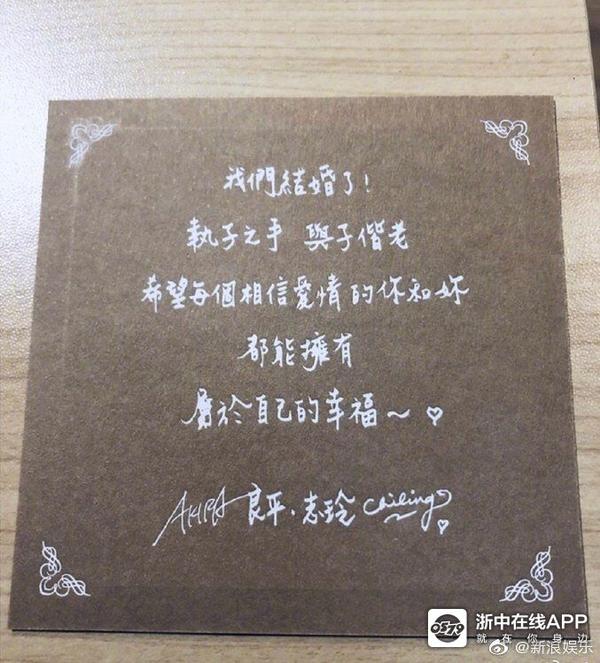 我們結婚了!
執子之手 與子偕老
希望每個相信愛情的你和妳
都能擁有
屬於自己的幸福~♡
AKIRA 良平、志玲 Chiling♡
浙中在线APP
就在你身边
@新浪娱乐